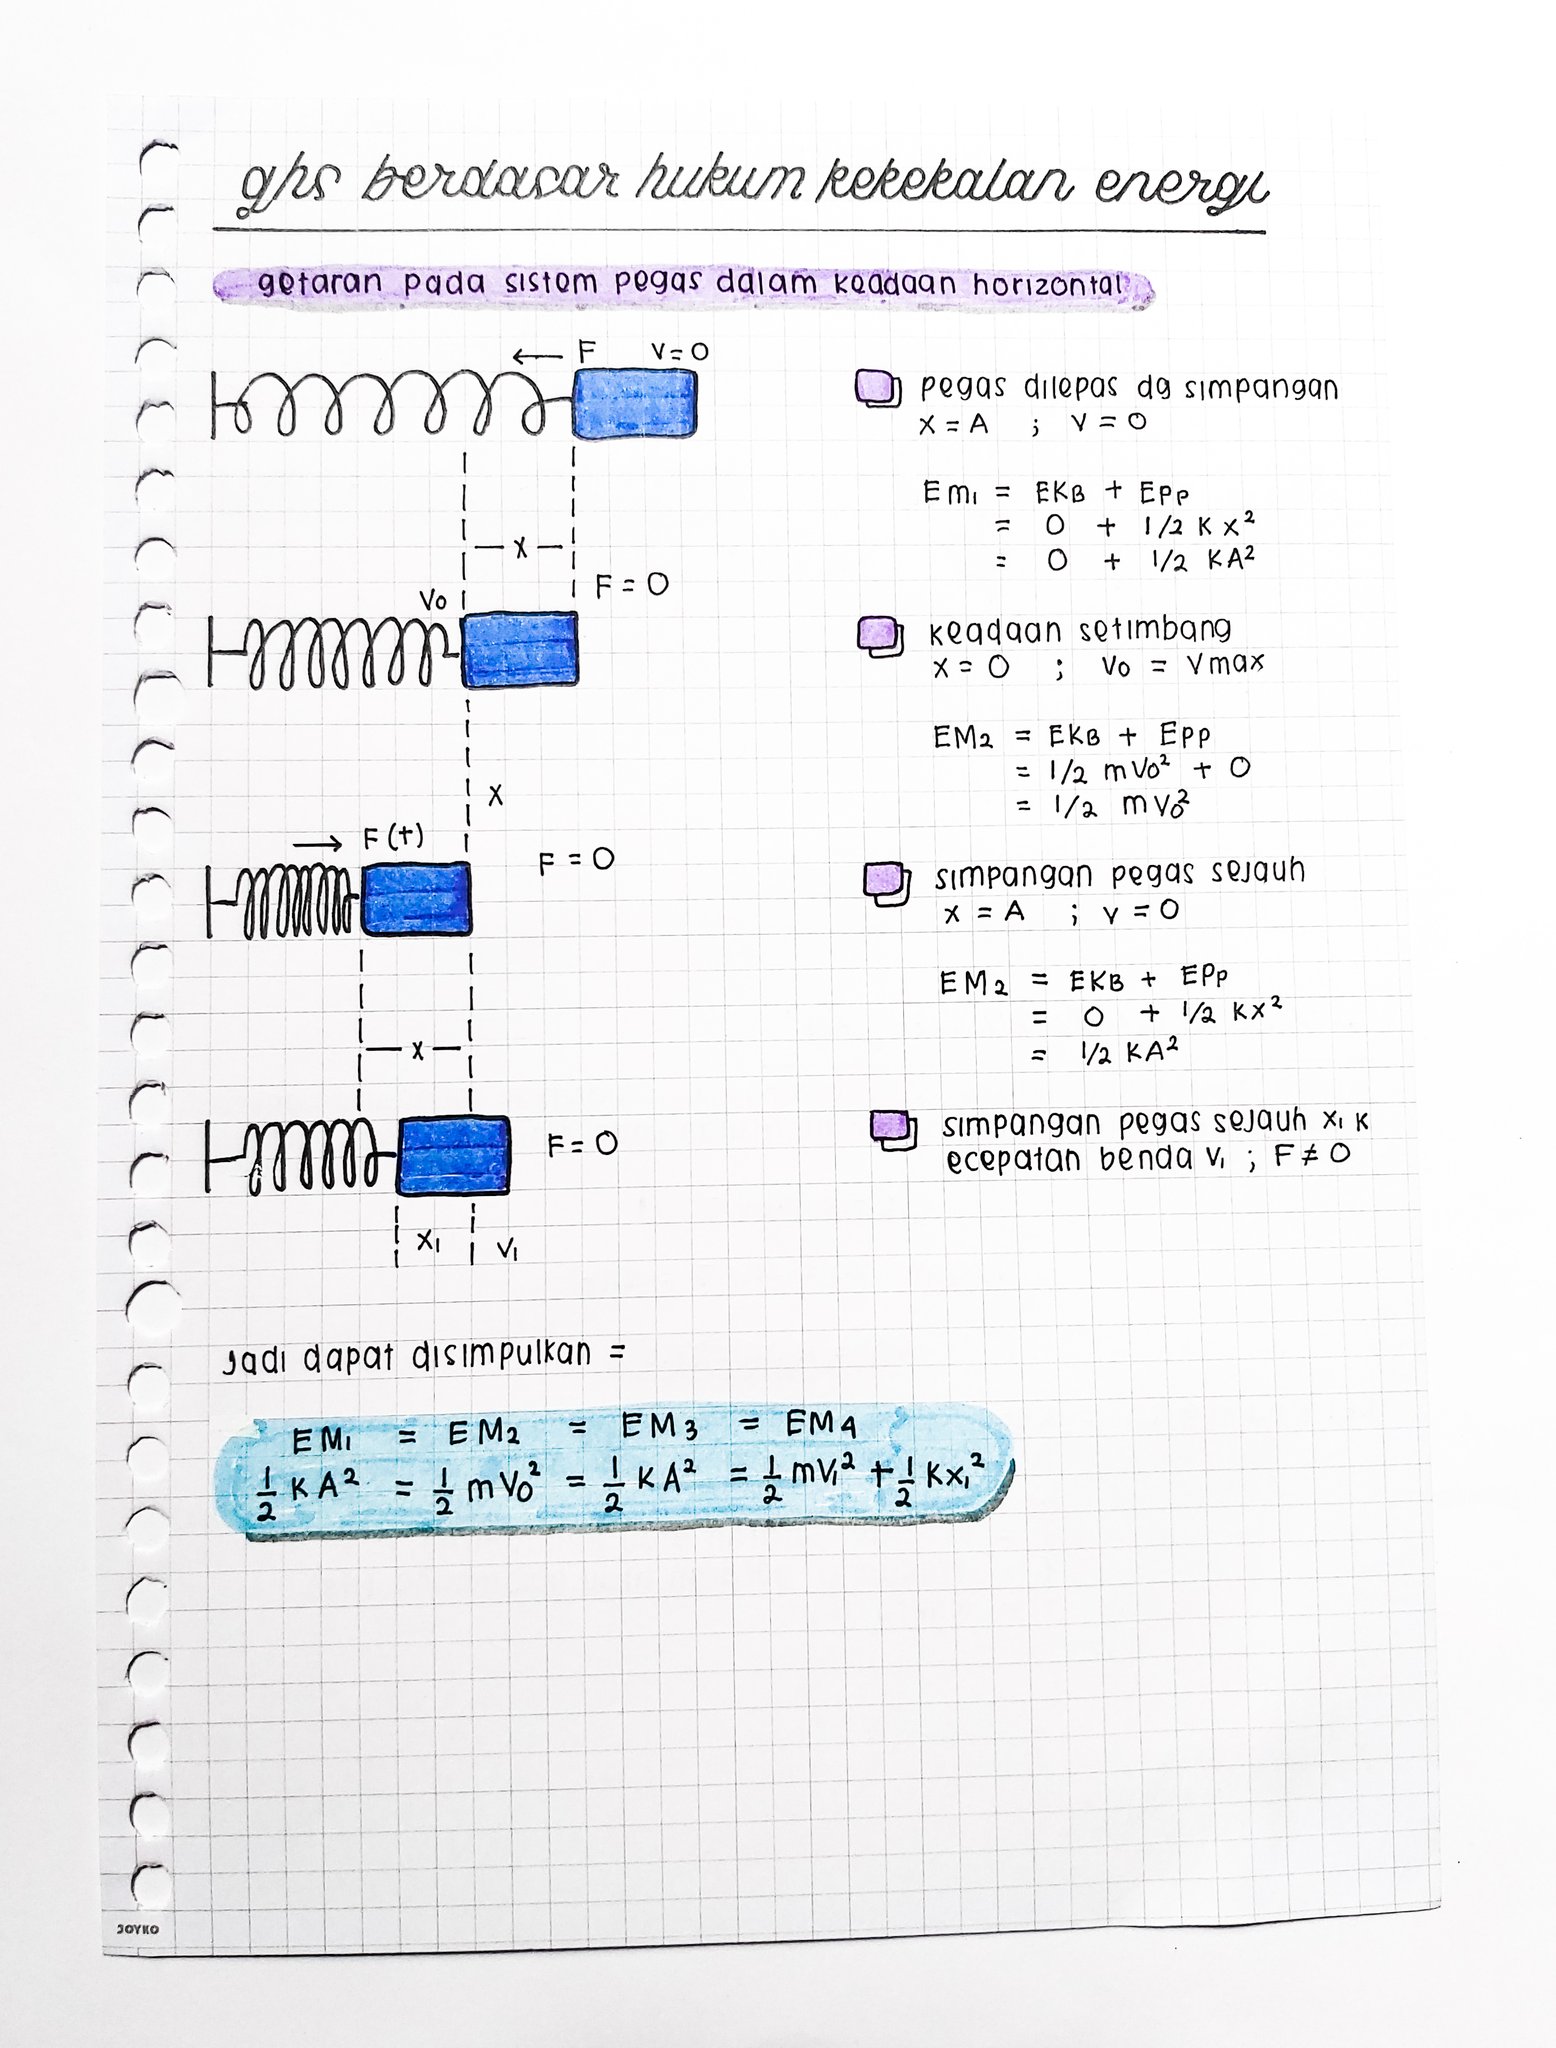 ghs berdasar hukum kekekalan energi
getaran pada sistem pegas dalam keadaan horizontal
← F V=0
— x —
F = 0
Vo
x
→ F (+)
F = 0
— x —
F = 0
x₁ V₁
pegas dilepas dg simpangan
x = A ; v = 0
Em₁ = EKB + EPp
= 0 + 1/2 K x²
= 0 + 1/2 KA²
keadaan setimbang
x = 0 ; Vo = Vmax
EM₂ = EKB + EPp
= 1/2 mVo² + 0
= 1/2 mVo²
simpangan pegas sejauh
x = A ; v = 0
EM₂ = EKB + EPp
= 0 + 1/2 Kx²
= 1/2 KA²
simpangan pegas sejauh x₁ K
ecepatan benda V₁ ; F ≠ 0
Jadi dapat disimpulkan =
EM₁ = EM₂ = EM₃ = EM₄
1/2 KA² = 1/2 mVo² = 1/2 KA² = 1/2 mV₁² + 1/2 Kx₁²
JOYKO